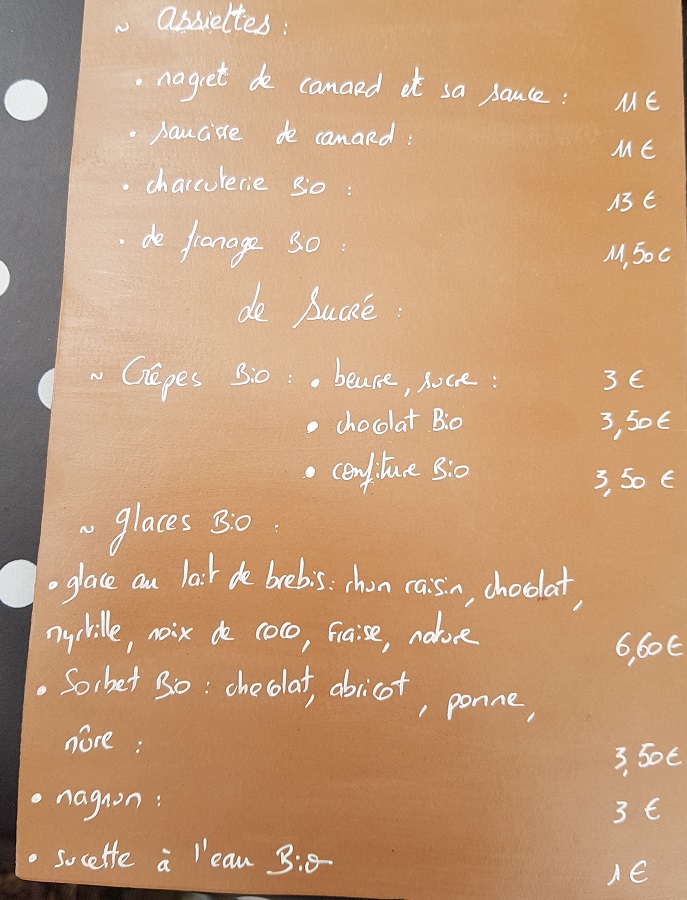 ~ Assiettes :
• magret de canard et sa sauce : 11 €
• saucisse de canard : 11 €
• charcuterie Bio : 13 €
• de fromage Bio : 11,50 €
de Sucré :
~ Crêpes Bio : • beurre, sucre : 3 €
• chocolat Bio 3,50 €
• confiture Bio 3,50 €
~ glaces Bio :
• glace au lait de brebis : rhum raisin, chocolat,
myrtille, noix de coco, fraise, nature 6,60 €
• Sorbet Bio : chocolat, abricot, pomme,
mûre : 3,50 €
• magnum : 3 €
• sucette à l'eau Bio 1 €